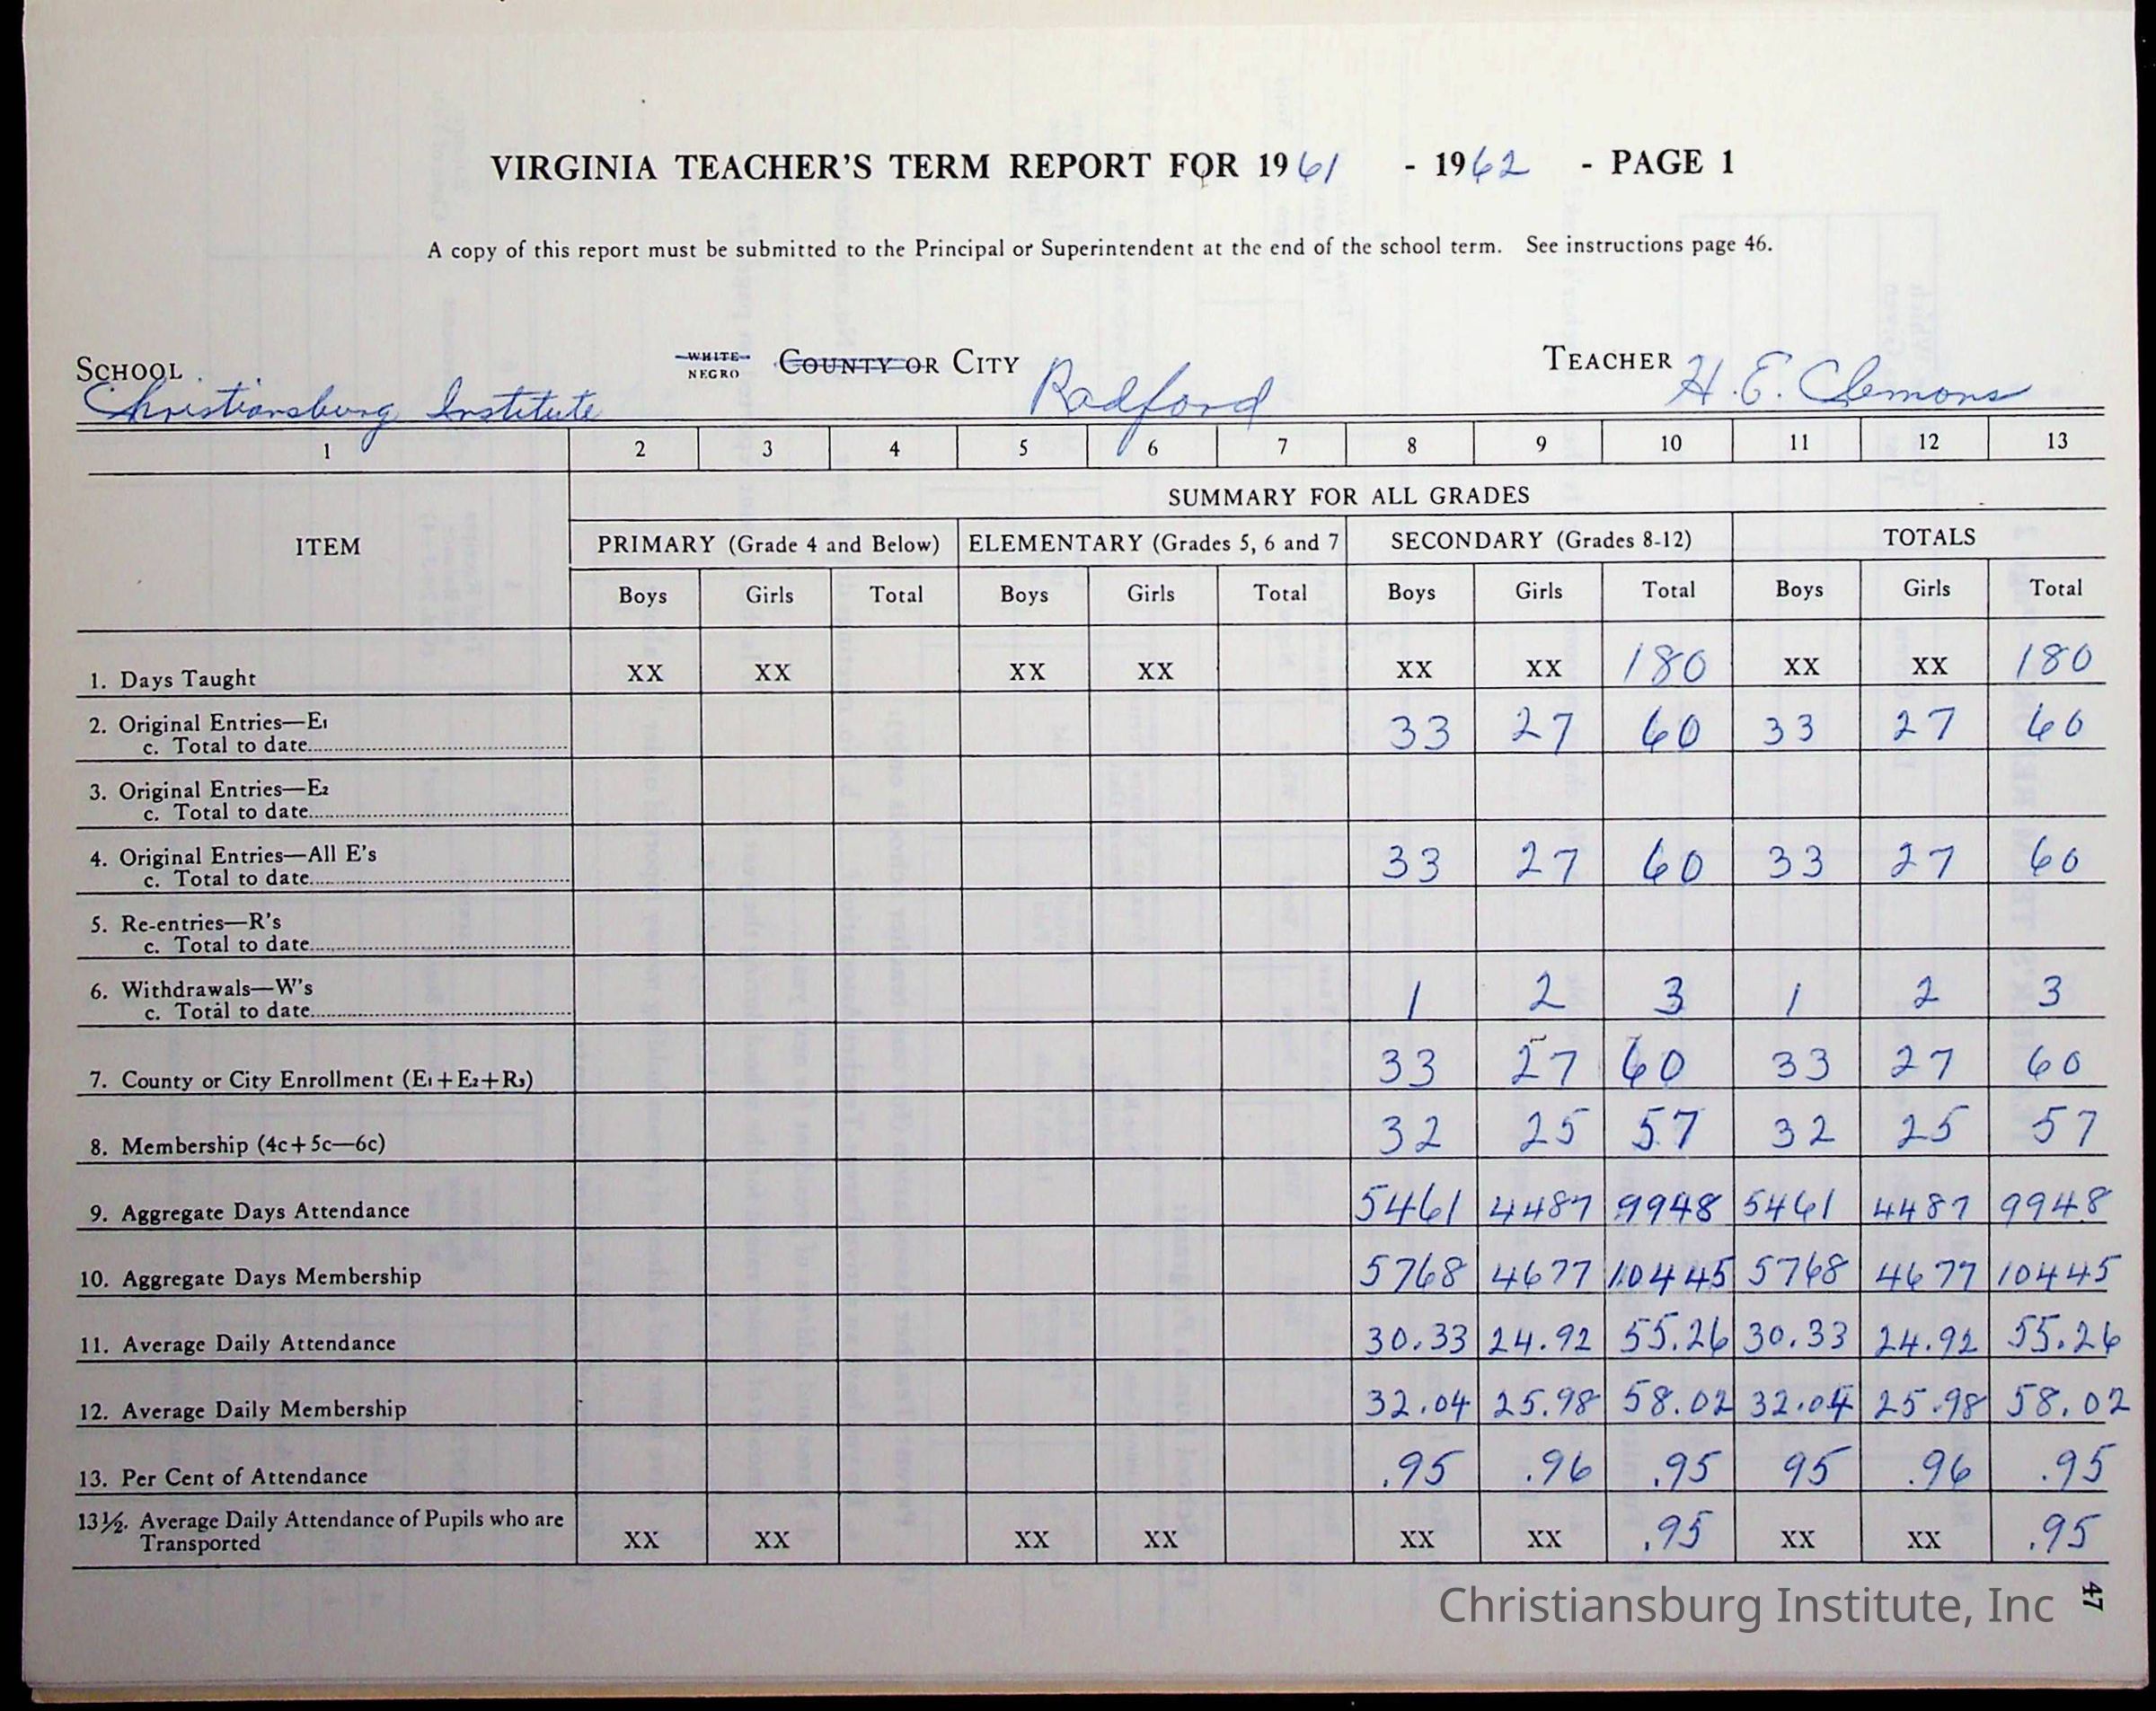 VIRGINIA TEACHER'S TERM REPORT FOR 1961 - 1962 - PAGE 1
A copy of this report must be submitted to the Principal or Superintendent at the end of the school term. See instructions page 46.
SCHOOL Christiansburg Institute WHITE NEGRO COUNTY OR CITY Radford TEACHER H. E. Clemons
1 2 3 4 5 6 7 8 9 10 11 12 13
SUMMARY FOR ALL GRADES
ITEM PRIMARY (Grade 4 and Below) ELEMENTARY (Grades 5, 6 and 7 SECONDARY (Grades 8-12) TOTALS
Boys Girls Total Boys Girls Total Boys Girls Total Boys Girls Total
1. Days Taught XX XX XX XX XX XX 180 XX XX 180
2. Original Entries—E1
c. Total to date 33 27 60 33 27 60
3. Original Entries—E2
c. Total to date
4. Original Entries—All E's
c. Total to date 33 27 60 33 27 60
5. Re-entries—R's
c. Total to date
6. Withdrawals—W's
c. Total to date 1 2 3 1 2 3
7. County or City Enrollment (E1+E2+R3) 33 27 60 33 27 60
8. Membership (4c+5c—6c) 32 25 57 32 25 57
9. Aggregate Days Attendance 5461 4487 9948 5461 4487 9948
10. Aggregate Days Membership 5768 4677 10445 5768 4677 10445
11. Average Daily Attendance 30.33 24.92 55.26 30.33 24.92 55.26
12. Average Daily Membership 32.04 25.98 58.02 32.04 25.98 58.02
13. Per Cent of Attendance .95 .96 .95 95 .96 .95
13½. Average Daily Attendance of Pupils who are
Transported XX XX XX XX XX XX .95 XX XX .95
Christiansburg Institute, Inc
47